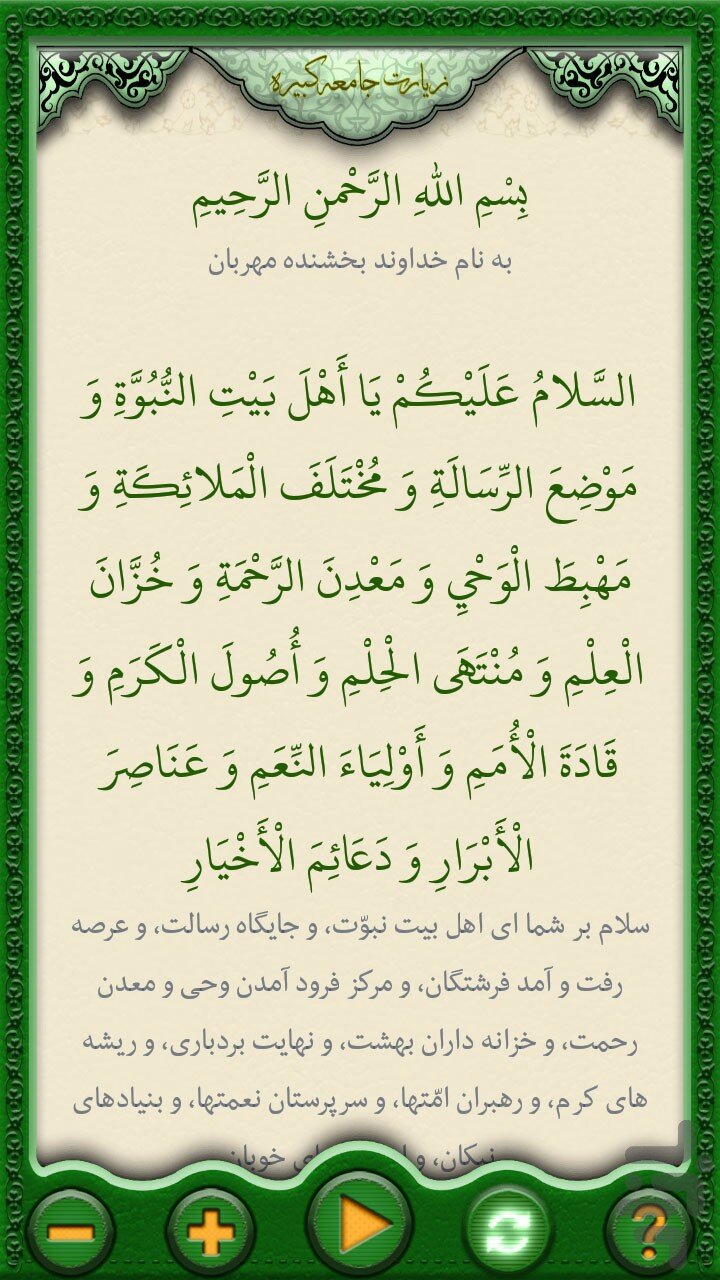 زیارت جامعه کبیره
بِسْمِ اللهِ الرَّحْمنِ الرَّحِيمِ
به نام خداوند بخشنده مهربان
السَّلامُ عَلَيْكُمْ يَا أَهْلَ بَيْتِ النُّبُوَّةِ وَ
مَوْضِعَ الرِّسَالَةِ وَ مُخْتَلَفَ الْمَلائِكَةِ وَ
مَهْبِطَ الْوَحْيِ وَ مَعْدِنَ الرَّحْمَةِ وَ خُزَّانَ
الْعِلْمِ وَ مُنْتَهَى الْحِلْمِ وَ أُصُولَ الْكَرَمِ وَ
قَادَةَ الْأُمَمِ وَ أَوْلِيَاءَ النِّعَمِ وَ عَنَاصِرَ
الْأَبْرَارِ وَ دَعَائِمَ الْأَخْيَارِ
سلام بر شما ای اهل بیت نبوّت، و جایگاه رسالت، و عرصه
رفت و آمد فرشتگان، و مرکز فرود آمدن وحی و معدن
رحمت، و خزانه داران بهشت، و نهایت بردباری، و ریشه
های کرم، و رهبران امّتها، و سرپرستان نعمتها، و بنیادهای
نیکان، و خوبان